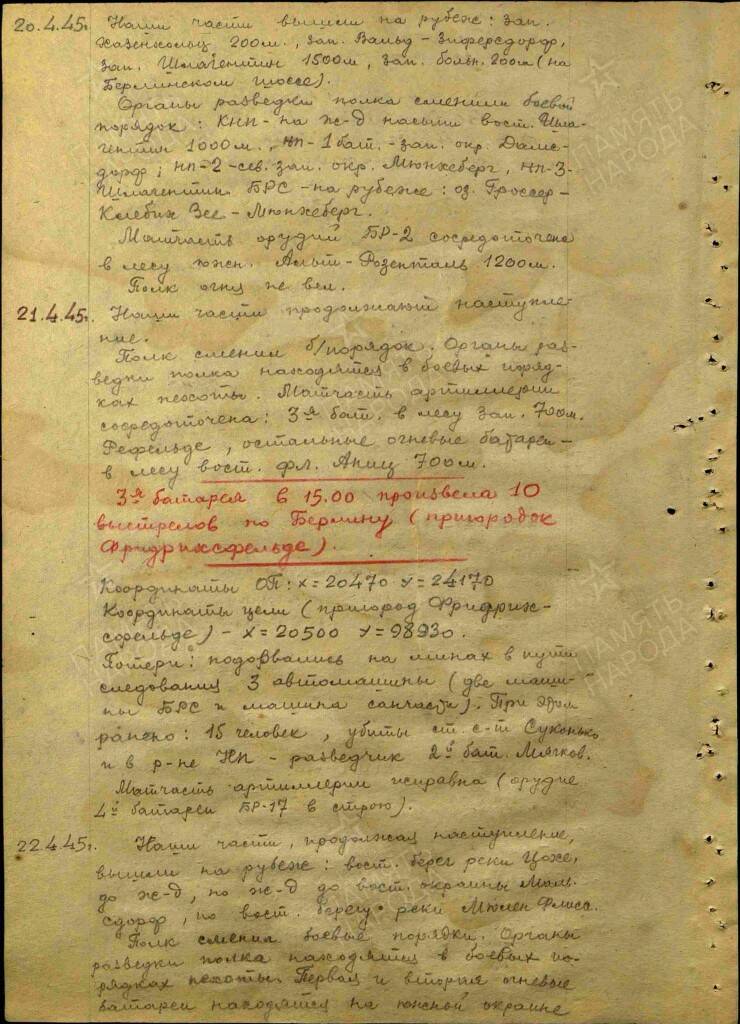 20.4.45г. Наши части вышли на рубеж: зап.
Хазенхольц 200м., зап. Вальд-Зиферсдорф,
зап. Шлагентин 1500м, зап. больн. 200м (на
Берлинском шоссе).
Органы разведки полка сменили боевой
порядок: КНП- на ж-д насыпи вост. Шла-
гентин 1000м., НП-1 бат.- зап. окр. Дамс-
дорф; НП-2-сев. зап. окр. Мюнхеберг, НП-3-
Шлагентин. БРС-на рубеже: оз. Гроссер-
Клебих Зее-Мюнхеберг.
Матчасть орудий БР-2 сосредоточена
в лесу южн. Альт-Розенталь 1200м.
Полк огня не вел.
21.4.45г. Наши части продолжают наступле-
ние.
Полк сменил б/порядок. Органы раз-
ведки полка находятся в боевых поряд-
ках пехоты. Матчасть артиллерии
сосредоточена: 3я бат. в лесу зап. 700м.
Рефельде, остальные огневые батареи-
в лесу вост. фл. Аниц 700м.
3я батарея в 15.00 произвела 10
выстрелов по Берлину (пригородок
Фридрихсфельде).
Координаты ОП: х=20470 у=24170
Координаты цели (пригород Фридрих-
сфельде) - х=20500 у=98930.
Потери: подорвались на минах в пути
следования 3 автомашины (две маши-
ны БРС и машина санчасти). При этом
ранено: 15 человек, убиты ст. с-т Сухонько
и в р-не НП - разведчик 2й бат. Мягков.
Матчасть артиллерии исправна (орудие
4й батареи БР-17 в строю).
22.4.45г. Наши части, продолжая наступление,
вышли на рубеж: вост. берег реки Цохе,
до ж-д, по ж-д до вост. окраины Маль-
сдорф, по вост. берегу реки Мюлен Флисс.
Полк сменил боевые порядки. Органы
разведки полка находятся в боевых по-
рядках пехоты. Первая и вторая огневые
батареи находятся на южной окраине
ПАМЯТЬ
НАРОДА